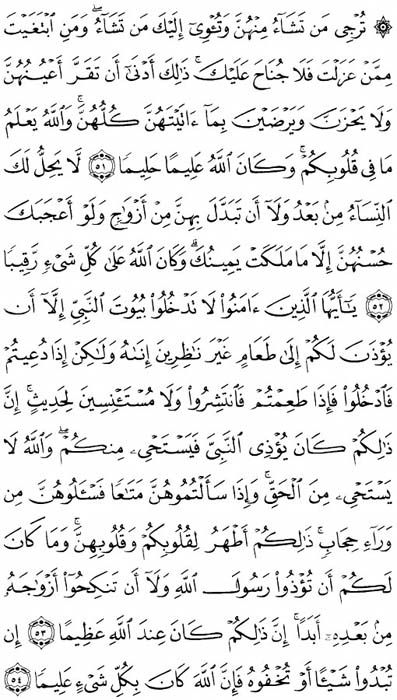 ۞ تُرْجِي مَن تَشَآءُ مِنْهُنَّ وَتُـْٔوِىٓ إِلَيْكَ مَن تَشَآءُ ۖ وَمَنِ ٱبْتَغَيْتَ
مِمَّنْ عَزَلْتَ فَلَا جُنَاحَ عَلَيْكَ ۚ ذَٰلِكَ أَدْنَىٰٓ أَن تَقَرَّ أَعْيُنُهُنَّ
وَلَا يَحْزَنَّ وَيَرْضَيْنَ بِمَآ ءَاتَيْتَهُنَّ كُلُّهُنَّ ۚ وَٱللَّهُ يَعْلَمُ
مَا فِى قُلُوبِكُمْ ۚ وَكَانَ ٱللَّهُ عَلِيمًا حَلِيمًا ۝٥١ لَّا يَحِلُّ لَكَ
ٱلنِّسَآءُ مِنۢ بَعْدُ وَلَآ أَن تَبَدَّلَ بِهِنَّ مِنْ أَزْوَٰجٍ وَلَوْ أَعْجَبَكَ
حُسْنُهُنَّ إِلَّا مَا مَلَكَتْ يَمِينُكَ ۗ وَكَانَ ٱللَّهُ عَلَىٰ كُلِّ شَىْءٍ رَّقِيبًا
۝٥٢ يَـٰٓأَيُّهَا ٱلَّذِينَ ءَامَنُوا۟ لَا تَدْخُلُوا۟ بُيُوتَ ٱلنَّبِىِّ إِلَّآ أَن
يُؤْذَنَ لَكُمْ إِلَىٰ طَعَامٍ غَيْرَ نَـٰظِرِينَ إِنَىٰهُ وَلَـٰكِنْ إِذَا دُعِيتُمْ
فَٱدْخُلُوا۟ فَإِذَا طَعِمْتُمْ فَٱنتَشِرُوا۟ وَلَا مُسْتَـْٔنِسِينَ لِحَدِيثٍ ۚ إِنَّ
ذَٰلِكُمْ كَانَ يُؤْذِى ٱلنَّبِىَّ فَيَسْتَحْىِۦ مِنكُمْ ۖ وَٱللَّهُ لَا
يَسْتَحْىِۦ مِنَ ٱلْحَقِّ ۚ وَإِذَا سَأَلْتُمُوهُنَّ مَتَـٰعًا فَسْـَٔلُوهُنَّ مِن
وَرَآءِ حِجَابٍ ۚ ذَٰلِكُمْ أَطْهَرُ لِقُلُوبِكُمْ وَقُلُوبِهِنَّ ۚ وَمَا كَانَ
لَكُمْ أَن تُؤْذُوا۟ رَسُولَ ٱللَّهِ وَلَآ أَن تَنكِحُوٓا۟ أَزْوَٰجَهُۥ
مِنۢ بَعْدِهِۦٓ أَبَدًا ۚ إِنَّ ذَٰلِكُمْ كَانَ عِندَ ٱللَّهِ عَظِيمًا ۝٥٣ إِن
تُبْدُوا۟ شَيْـًٔا أَوْ تُخْفُوهُ فَإِنَّ ٱللَّهَ كَانَ بِكُلِّ شَىْءٍ عَلِيمًا ۝٥٤